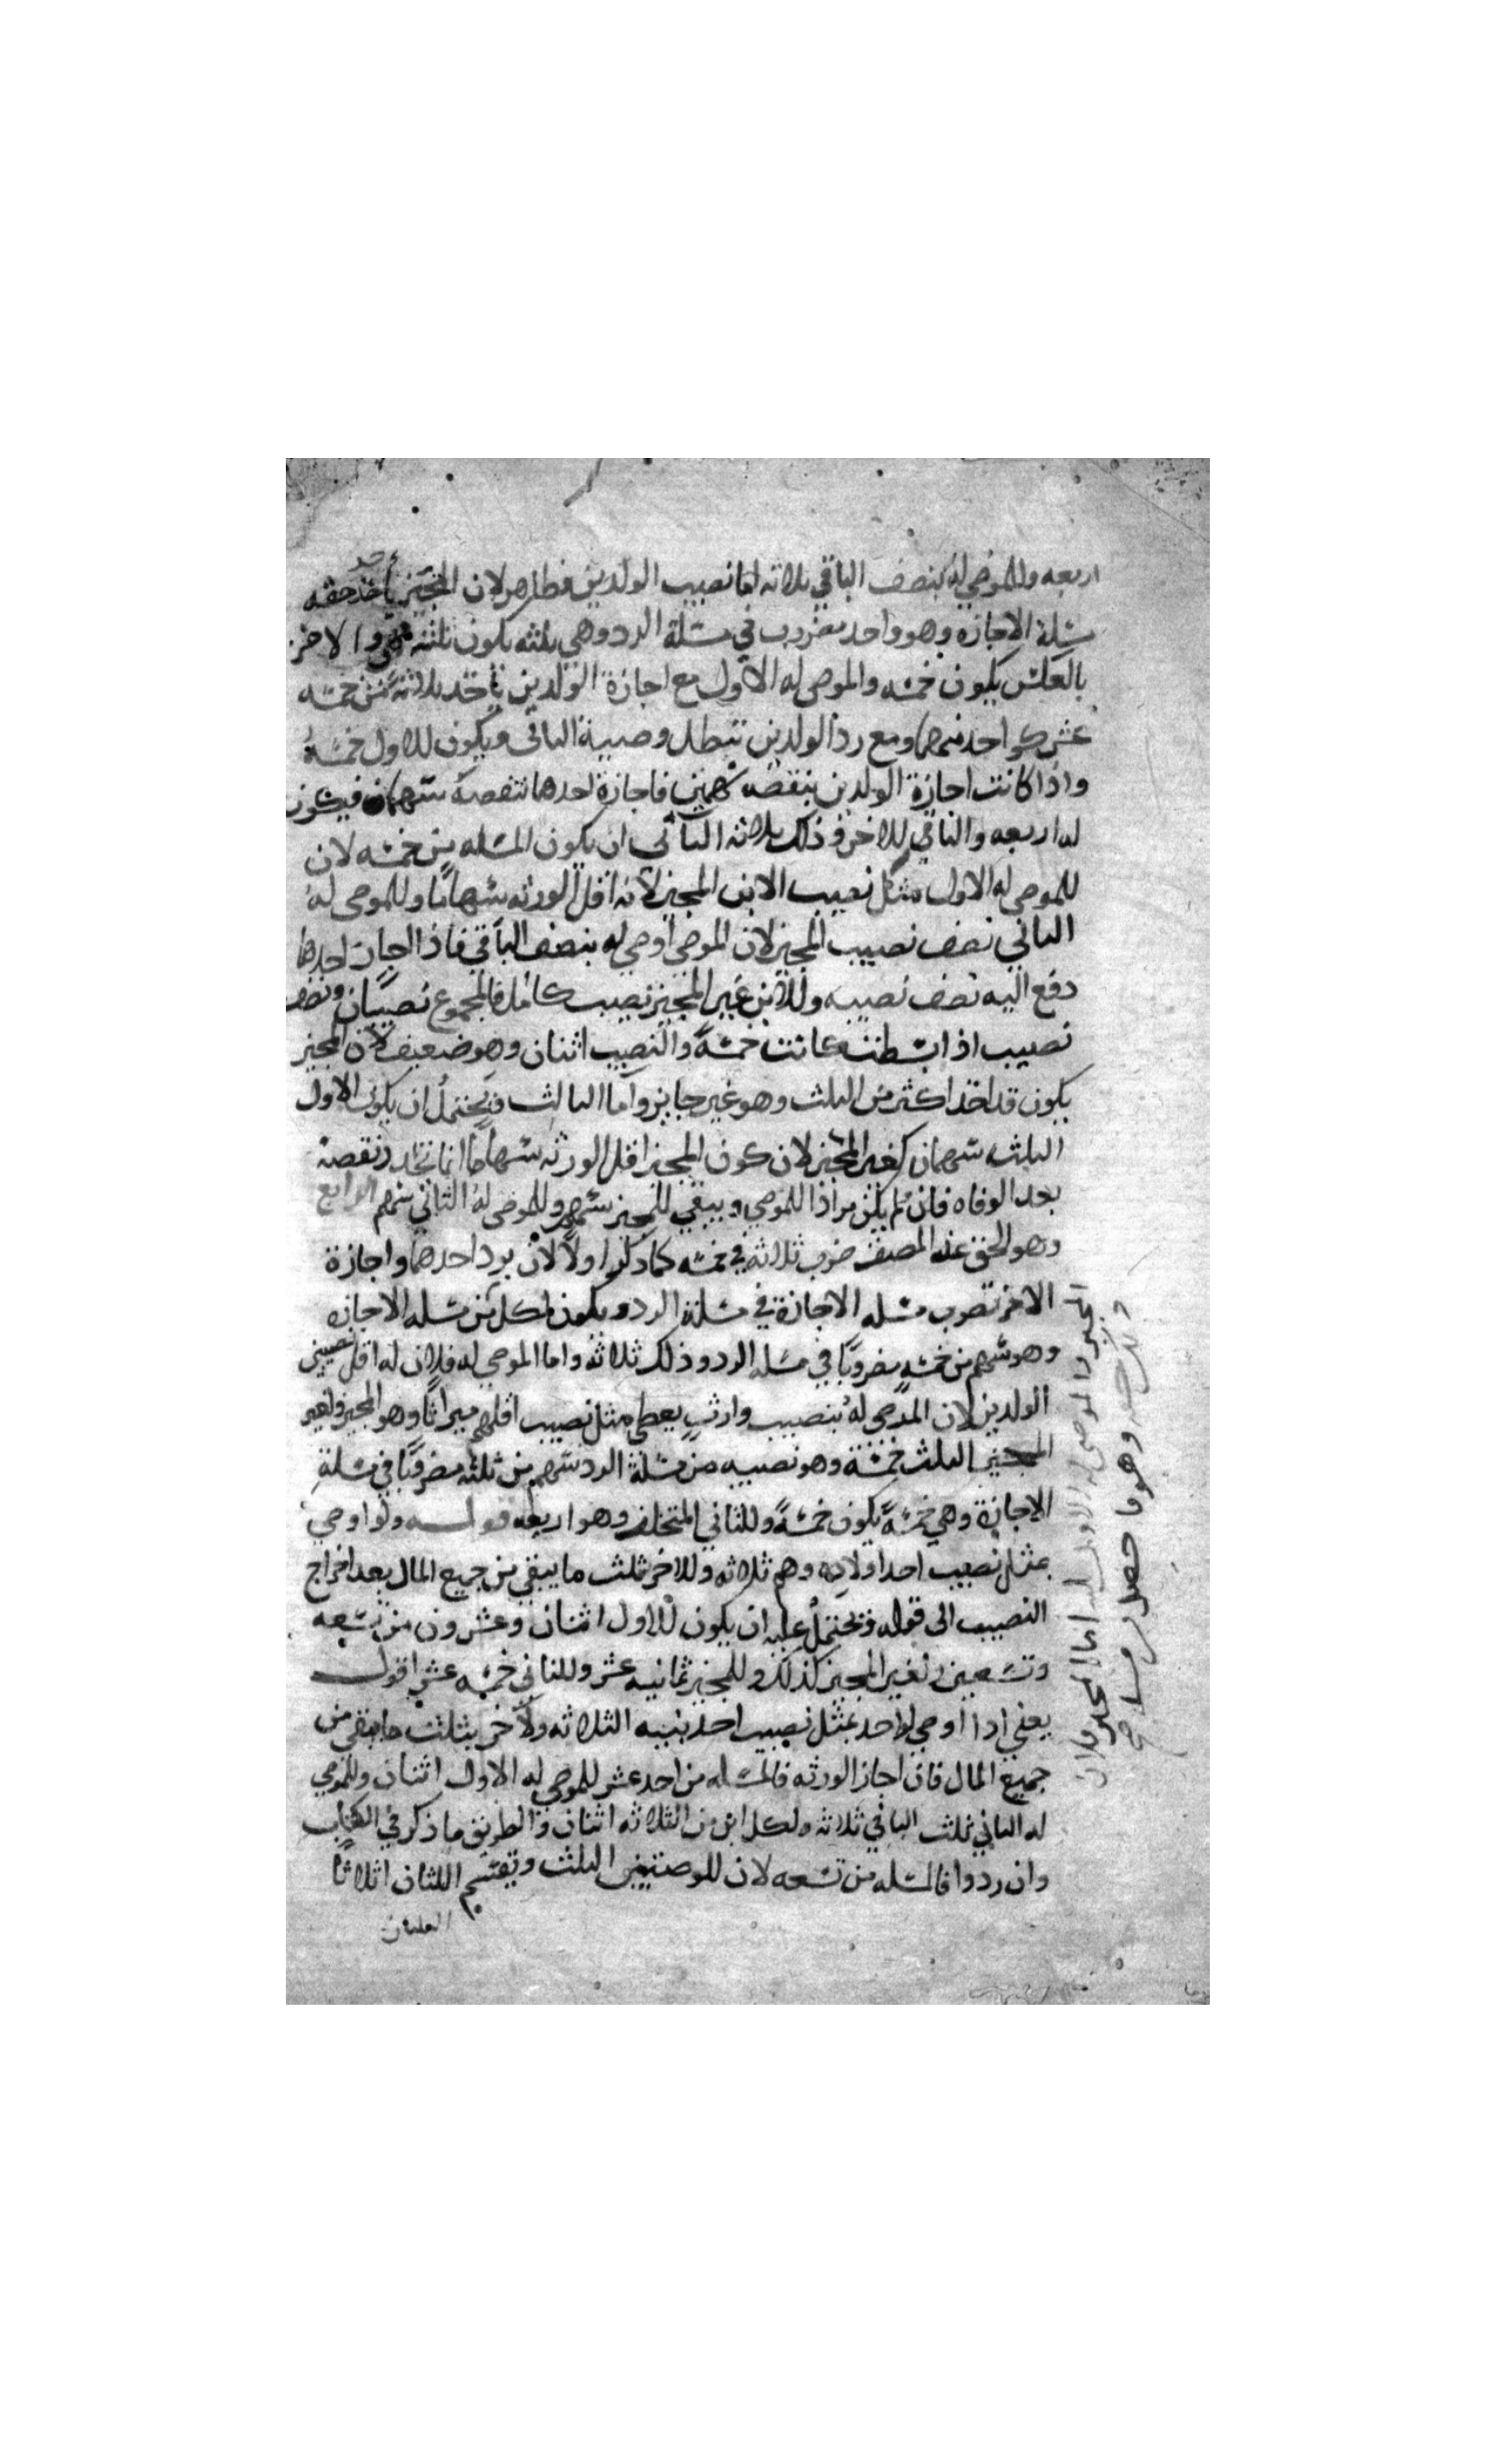 اربعه وللموصى له بنصف الباقي ثلاثه اما نصيب الولدين فظاهر لان المجيز ياخذ حقه
مسئلة الاجازه وهو واحد مضروب في مسئلة الرد وهي ثلثه يكون ثلثه والاخر
بالعكس يكون خمسه والموصى له الاول مع اجازة الولدين ياخذ ثلاثة من خمسه
عشر كواحد منهما ومع رد الولدين تبطل وصية الثاني ويكون للاول خمسة
واذا كانت اجازة الولدين بنقصه سهمين فاجازة احدهما تنقصه سهما فيكون
له اربعه والباقي للاخر وذلك ثلاثه الثاني ان يكون المسئله من خمسه لان
للموصى له الاول مثل نصيب الابن المجيز لانه اقل الورثه سهاما وللموصى له
الثاني نصف نصيب المجيز لان الموصى اوصى له بنصف الباقي فاذا اجاز احدهما
دفع اليه نصف نصيبه وللابن غير المجيز نصيب كامل فالمجموع نصيبان ونصف
نصيب اذا بسطت كانت خمسةً والنصيب اثنان وهو ضعيف لان المجيز
يكون قد اخذ اكثر من الثلث وهو غير جايز واما الثالث فيحتمل ان يكون للاول
الثلث سهمان كغير المجيز لان كون المجيز اقل الورثه سهاما انما تجدد نقصه
بعد الوفاه فان لم يكن مرادا للموصي ويبقى للمجيز سهم وللموصى له الثاني سهم الرابع
وهو الحق عند المصنف ضرب ثلاثة في خمسه كما ذكر اولاً لان برد احدهما واجازة
الاخر تضرب مسئله الاجازة في مسئلة الرد ويكون لكل من مسئله الاجازه
وهو سهم من خمسةٍ مضروبًا في مسئله الرد وذلك ثلاثه واما الموصى له فلان له اقل نصيبي
الولدين لان الموصى له بنصيب وارثٍ يعطى مثل نصيب اقلهم ميراثًا وهو المجيز ولغير
المجيز الثلث خمسة وهو نصيبه من مسئلة الرد سهم من ثلثه مضروبًا في مسئلة
الاجازة وهي خمسةً يكون خمسةً وللثاني المتخلف وهو اربعه قوله ولو اوصى
بمثل نصيب احد اولاده وهم ثلاثه وللاخر ثلث ما يبقى من جميع المال بعد اخراج
النصيب الى قوله ويحتمل عليه ان يكون للاول اثنان وعشرون من تسعه
وتسعين ولغير المجيز كذلك وللمجيز ثمانيه عشر وللثاني خمسه عشر اقول
يعني اذا اوصى لواحد بمثل نصيب احد بنيه الثلاثه ولاخر بثلث ما يبقى من
جميع المال فان اجاز الورثه فالمسئله من احد عشر للموصى له الاول اثنان وللموصى
له الثاني ثلث الباقي ثلاثه ولكل ابن من الثلاثه اثنان والطريق ما ذكر في الكتاب
وان ردوا فالمسئله من تسعه لان للوصيتين الثلث وتقسم الثلثان اثلاثا